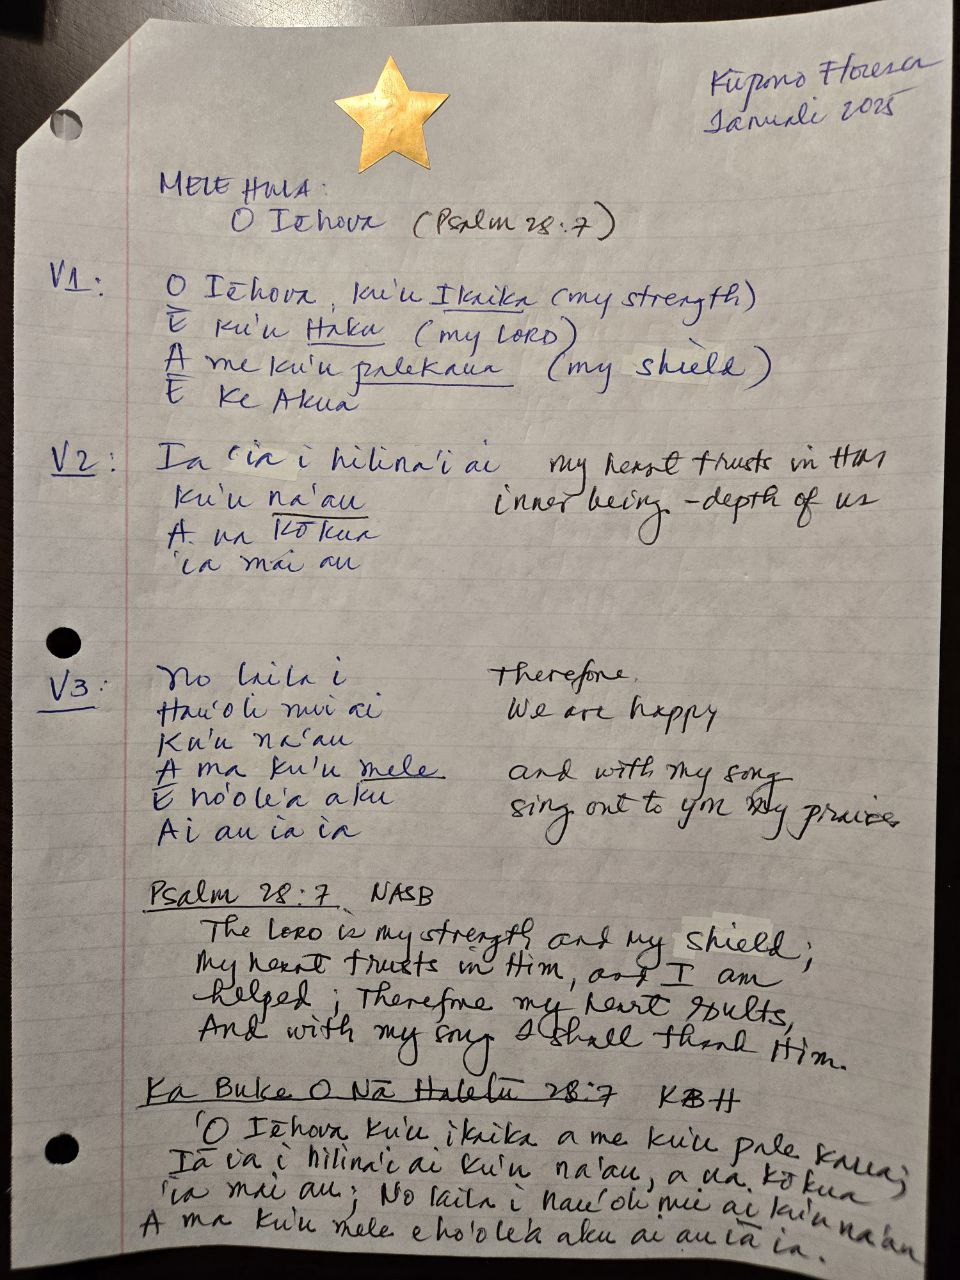 Kūpono Floresca
Ianuali 2025
MELE HULA:
O Iēhova (Psalm 28:7)
V1:
O Iēhova, ku'u Ikaika (my strength)
E ku'u Haku (my LORD)
A me ku'u palekaua (my shield)
E Ke Akua
V2:
Ia 'ia i hilina'i ai my heart trusts in Him
Ku'u na'au inner being - depth of us
A ua Kōkua
'ia mai au
V3:
No laila i Therefore,
Hau'oli nui ai We are happy
Ku'u na'au
A ma ku'u mele and with my song
E ho'ole'a aku sing out to you my praises
Ai au ia ia
Psalm 28:7 NASB
The LORD is my strength and my shield;
My heart trusts in Him, and I am
helped; Therefore my heart exults,
And with my song I shall thank Him.
Ka Buke O Nā Halelū 28:7 KBH
'O Iēhova ku'u ikaika a me ku'u pale kaua;
Iā ia i hilina'i ai ku'u na'au, a ua kōkua
'ia mai au; No laila i hau'oli nui ai ku'u na'au
A ma ku'u mele e ho'ole'a aku ai au iā ia.